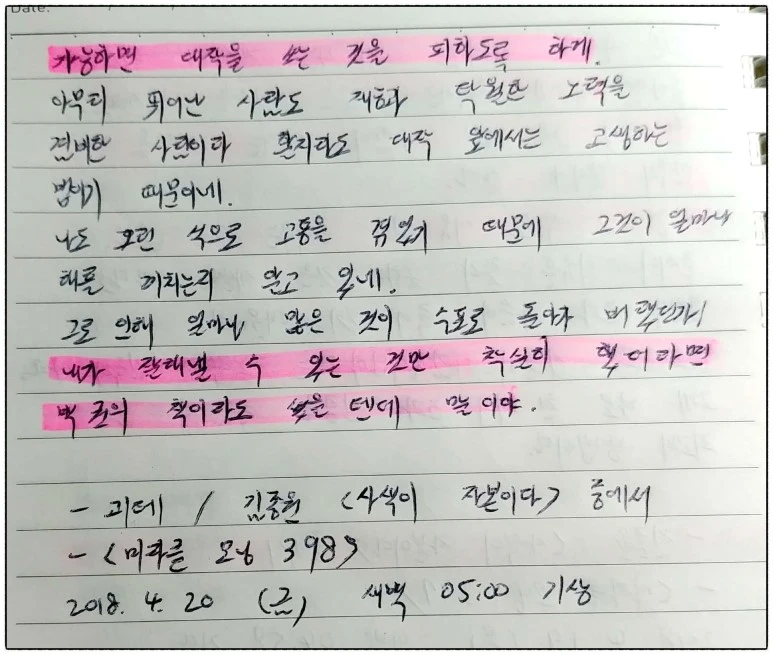 Date:
가능하면 대작을 쓰는 것을 피하도록 하게.
아무리 뛰어난 사람도 재능과 탁월한 노력을
겸비한 사람이라 할지라도 대작 앞에서는 고생하는
법이기 때문이네.
나도 오랜 식으로 고통을 겪었기 때문에 그것이 얼마나
해를 끼치는지 알고 있네.
그로 인해 얼마나 많은 것이 수포로 돌아가 버렸던가!
내가 잘해낼 수 있는 것만 착실히 했더라면
백 권의 책이라도 썼을 텐데 말이야.
- 괴테 / 김종원 <사색이 자본이다> 중에서
- <미라클 모닝 398>
2018. 4. 20 (금) 새벽 05:00 기상